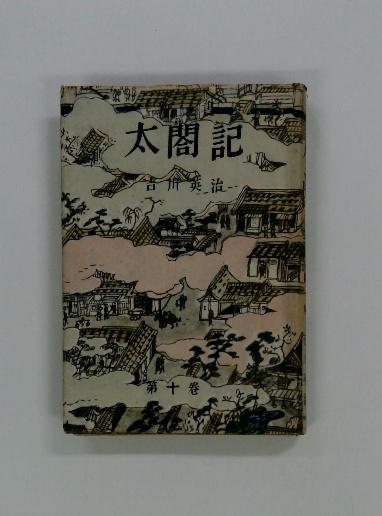 太閤記
吉川英治
第十卷